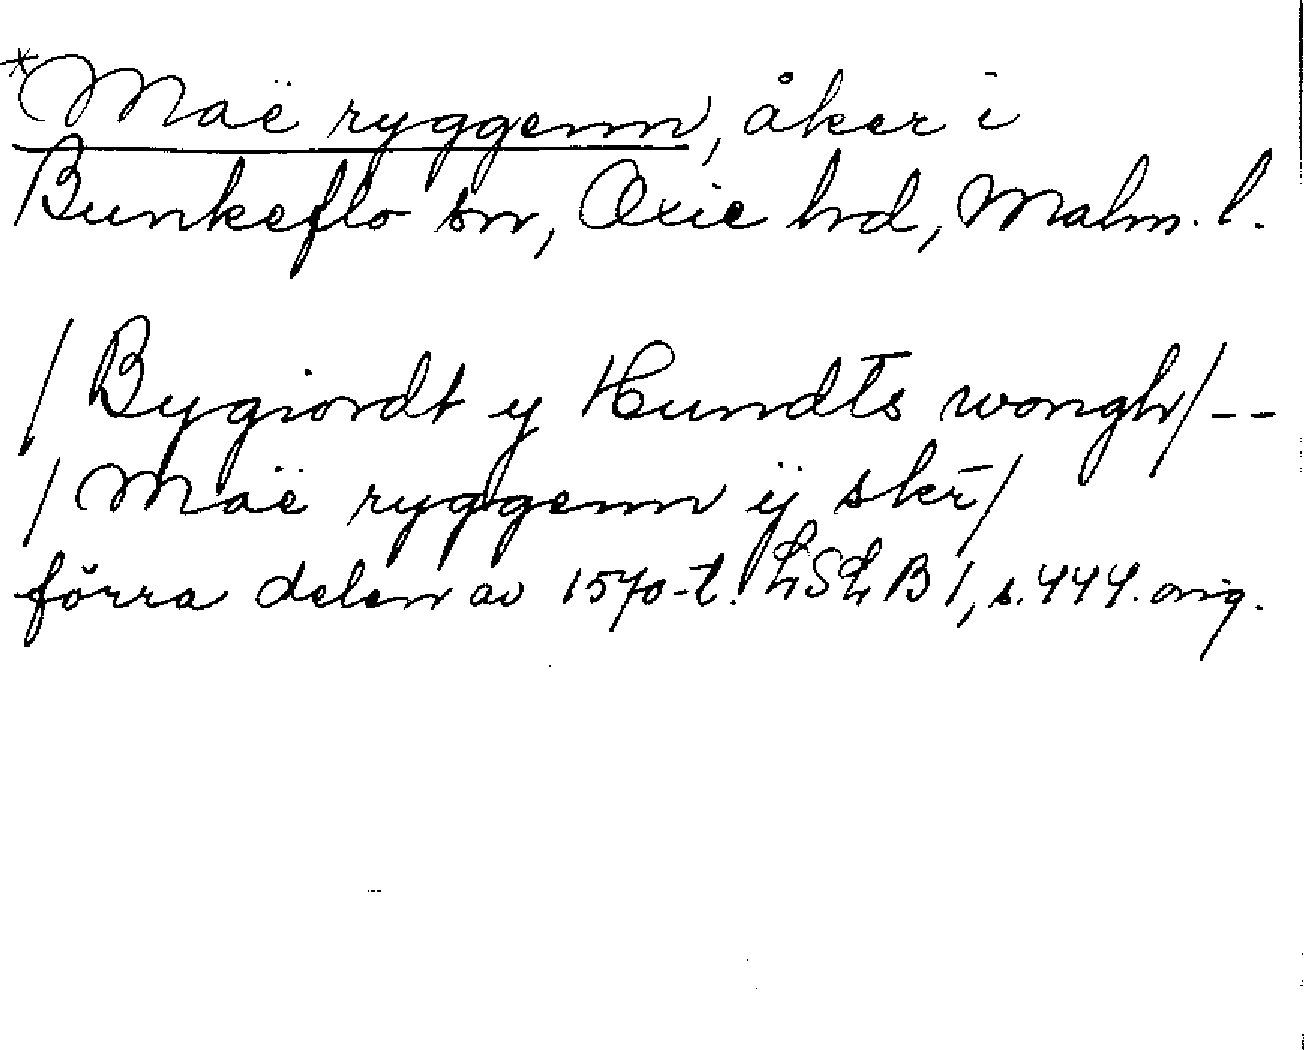 *Maë ryggenn, åker i
Bunkeflo sn, Oxie hd, Malm. l.
/ Bygiordt y Hundts wongh/--
/ Maë ryggenn ÿ skr̄/
förra delen av 1570-t. LSL B 1, s. 444. orig.